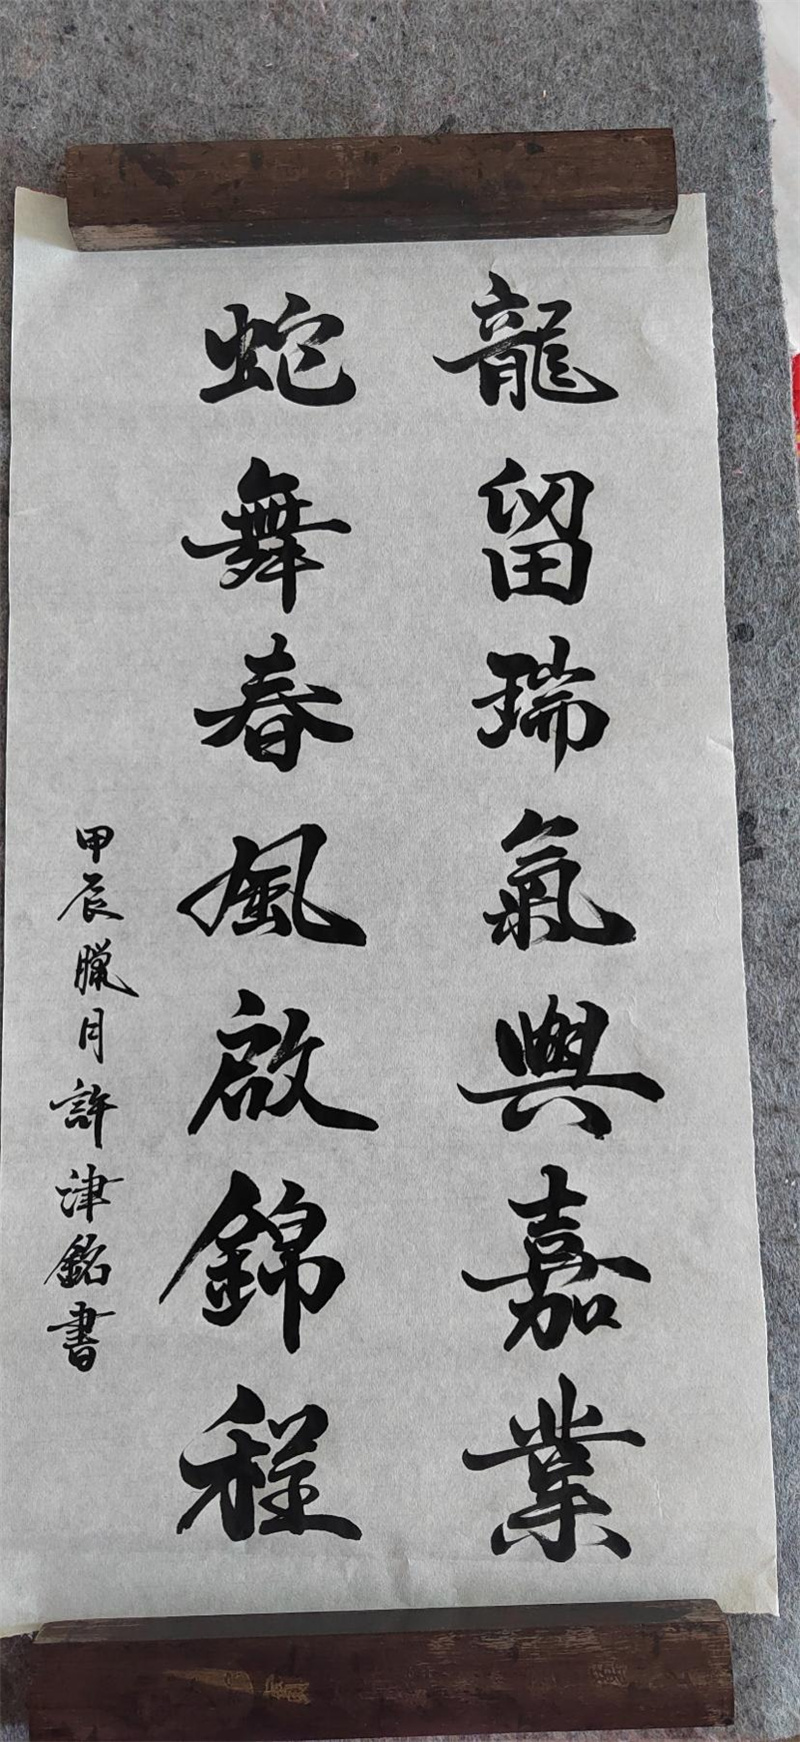 龍留瑞氣興嘉業
蛇舞春風啟錦程
甲辰臘月許津銘書